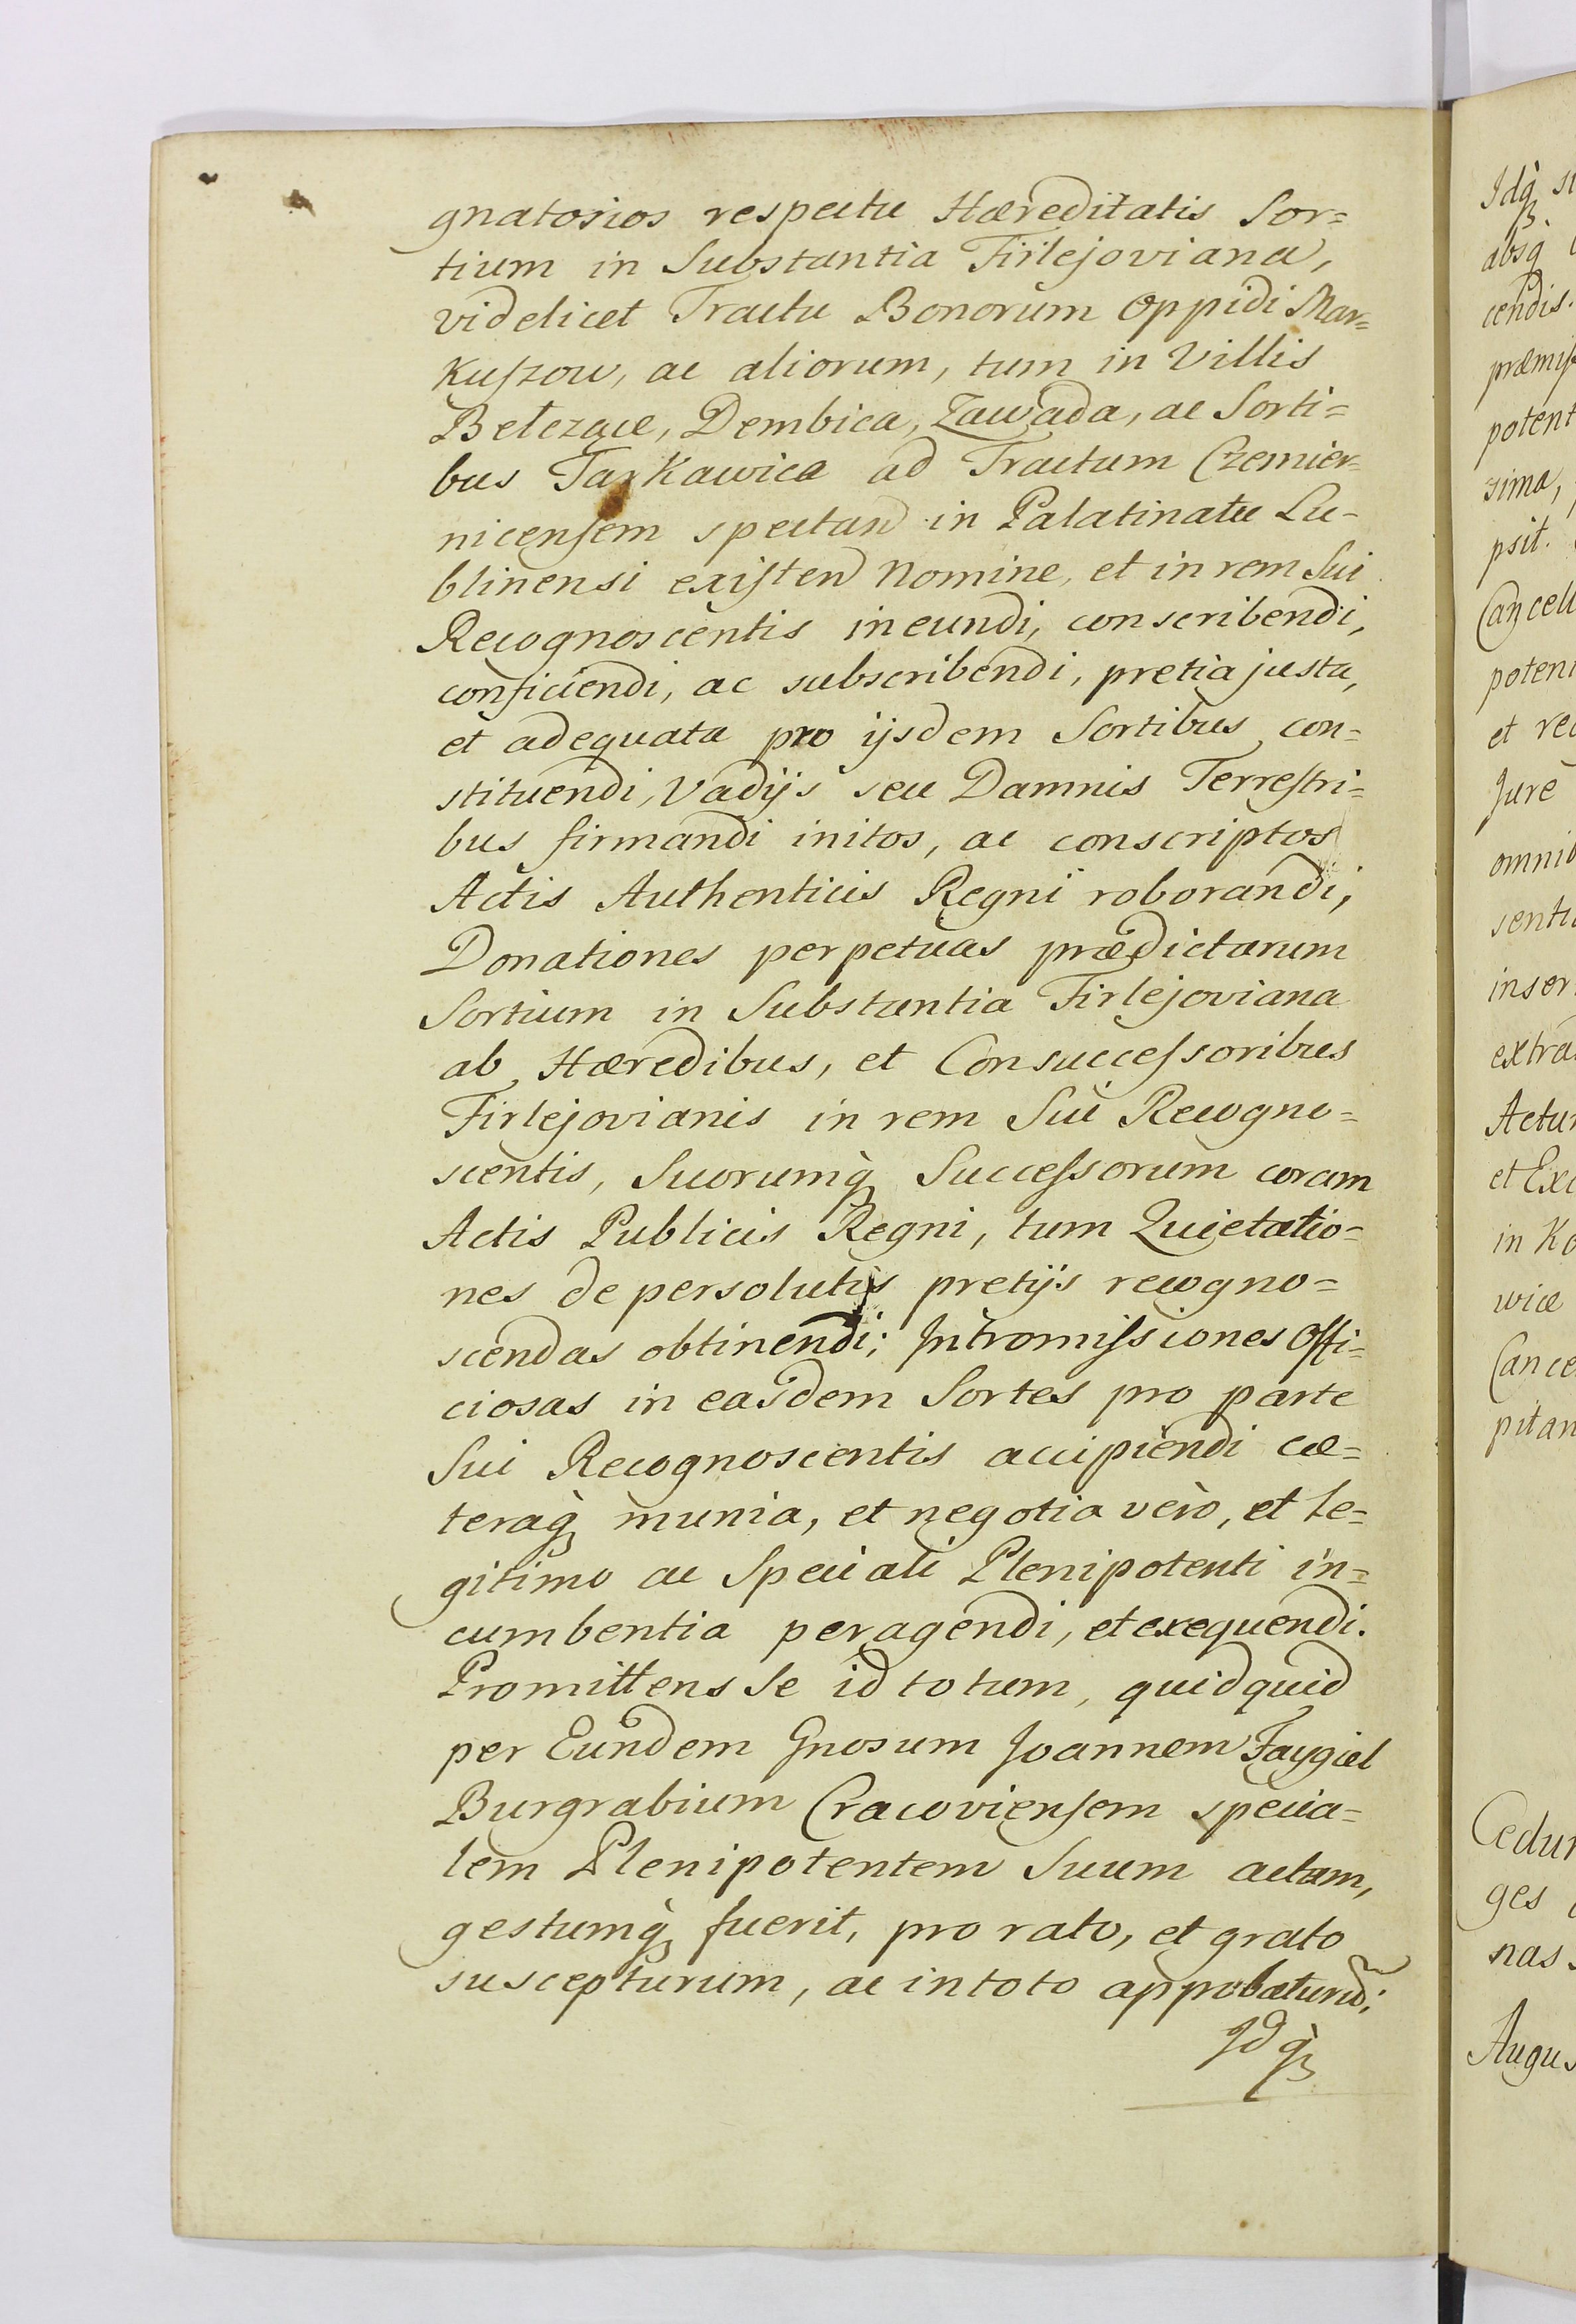 gnatorios respectu Hæreditatis Sor=
tium in Substantia Firlejoviana,
videlicet Tractu Bonorum Oppidi Mar=
kuszow, ac aliorum, tum in Villis
Bełczące, Dembica, Zawada, ac Sorti=
bus Tarkawica ad Tractum Czemier=
nicensem spectan in Palatinatu Lu-
blinensi existen Nomine, et in rem Sui
Recognoscentis ineundi, conscribendi,
conficiendi, ac subscribendi, pretia justa,
et adequata pro ijsdem Sortibus con=
stituendi, Vadijs seu Damnis Terrestri=
bus firmandi initos, ac conscriptos
Actis Authenticis Regni roborandi,
Donationes perpetuas prædictarum
Sortium in Substantia Firlejoviana
ab Hæredibus, et Consuccessoribus
Firlejovianis in rem Sui Recogno=
scentis, Suorumq̀ Successorum coram
Actis Publicis Regni, tum Quietatio=
nes de persolutis pretijs recogno=
scendas obtinendi; Intromissiones Offi=
ciosas in easdem Sortes pro parte
Sui Recognoscentis accipiendi cæ=
teraq̀ munia, et negotia vero, et le=
gitimo ac Speciali Plenipotenti in=
cumbentia peragendi, et exequendi.
Promittens Se id totum, quidquid
per Eundem Gnosum Joannem Faygiel
Burgrabium Cracoviensem specia=
lem Plenipotentem Suum actum,
gestumq̀ fuerit, pro rato, et grato
suscepturum, ac in toto approbaturũ;
Idq̀
Idq̀
absq̀
cendis.
præmiss
potent
sima,
psit.
Cancell
potent
et rec
Jure
omnib
senti
inser
extra
Actu
et Exc
in Ko
wiæ
Cance
pitan
Cedun
ges
nas
Augus